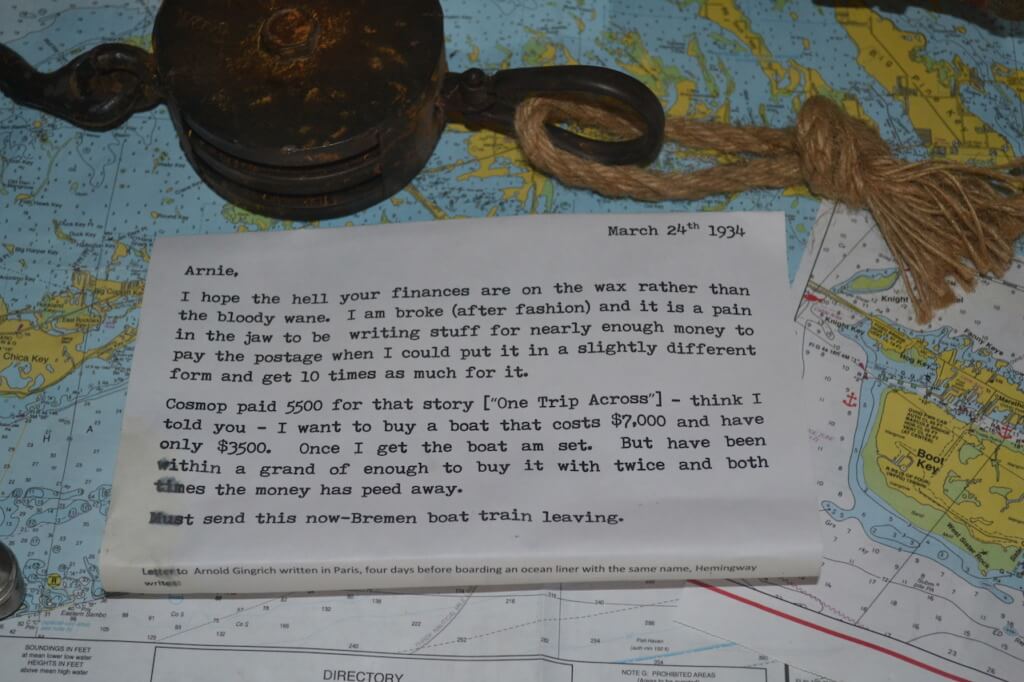 March 24th 1934
Arnie,
I hope the hell your finances are on the wax rather than
the bloody wane. I am broke (after fashion) and it is a pain
in the jaw to be writing stuff for nearly enough money to
pay the postage when I could put it in a slightly different
form and get 10 times as much for it.
Cosmop paid 5500 for that story ["One Trip Across"] - think I
told you - I want to buy a boat that costs $7,000 and have
only $3500. Once I get the boat am set. But have been
within a grand of enough to buy it with twice and both
times the money has peed away.
Must send this now-Bremen boat train leaving.
Letter to Arnold Gingrich written in Paris, four days before boarding an ocean liner with the same name, Hemingway
writes:
Chica Key
Knight Key
Boot
Key
SOUNDINGS IN FEET
at mean lower low water
HEIGHTS IN FEET
above mean high water
DIRECTORY
NOTE G: PROHIBITED AREAS